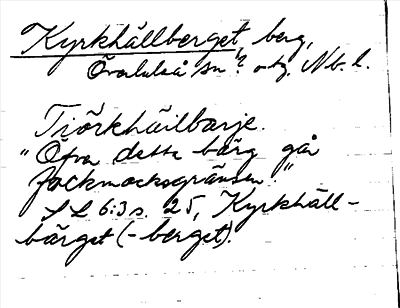 Kyrkhällberget, berg,
Överluleå sn? o. tg. Nb. l.
Tiörkhäilbarje.
"Öfra dette bärg går
Jockmocksgränsen."
S L 6:3 s. 25, Kyrkhäll-
bärget (-berget).